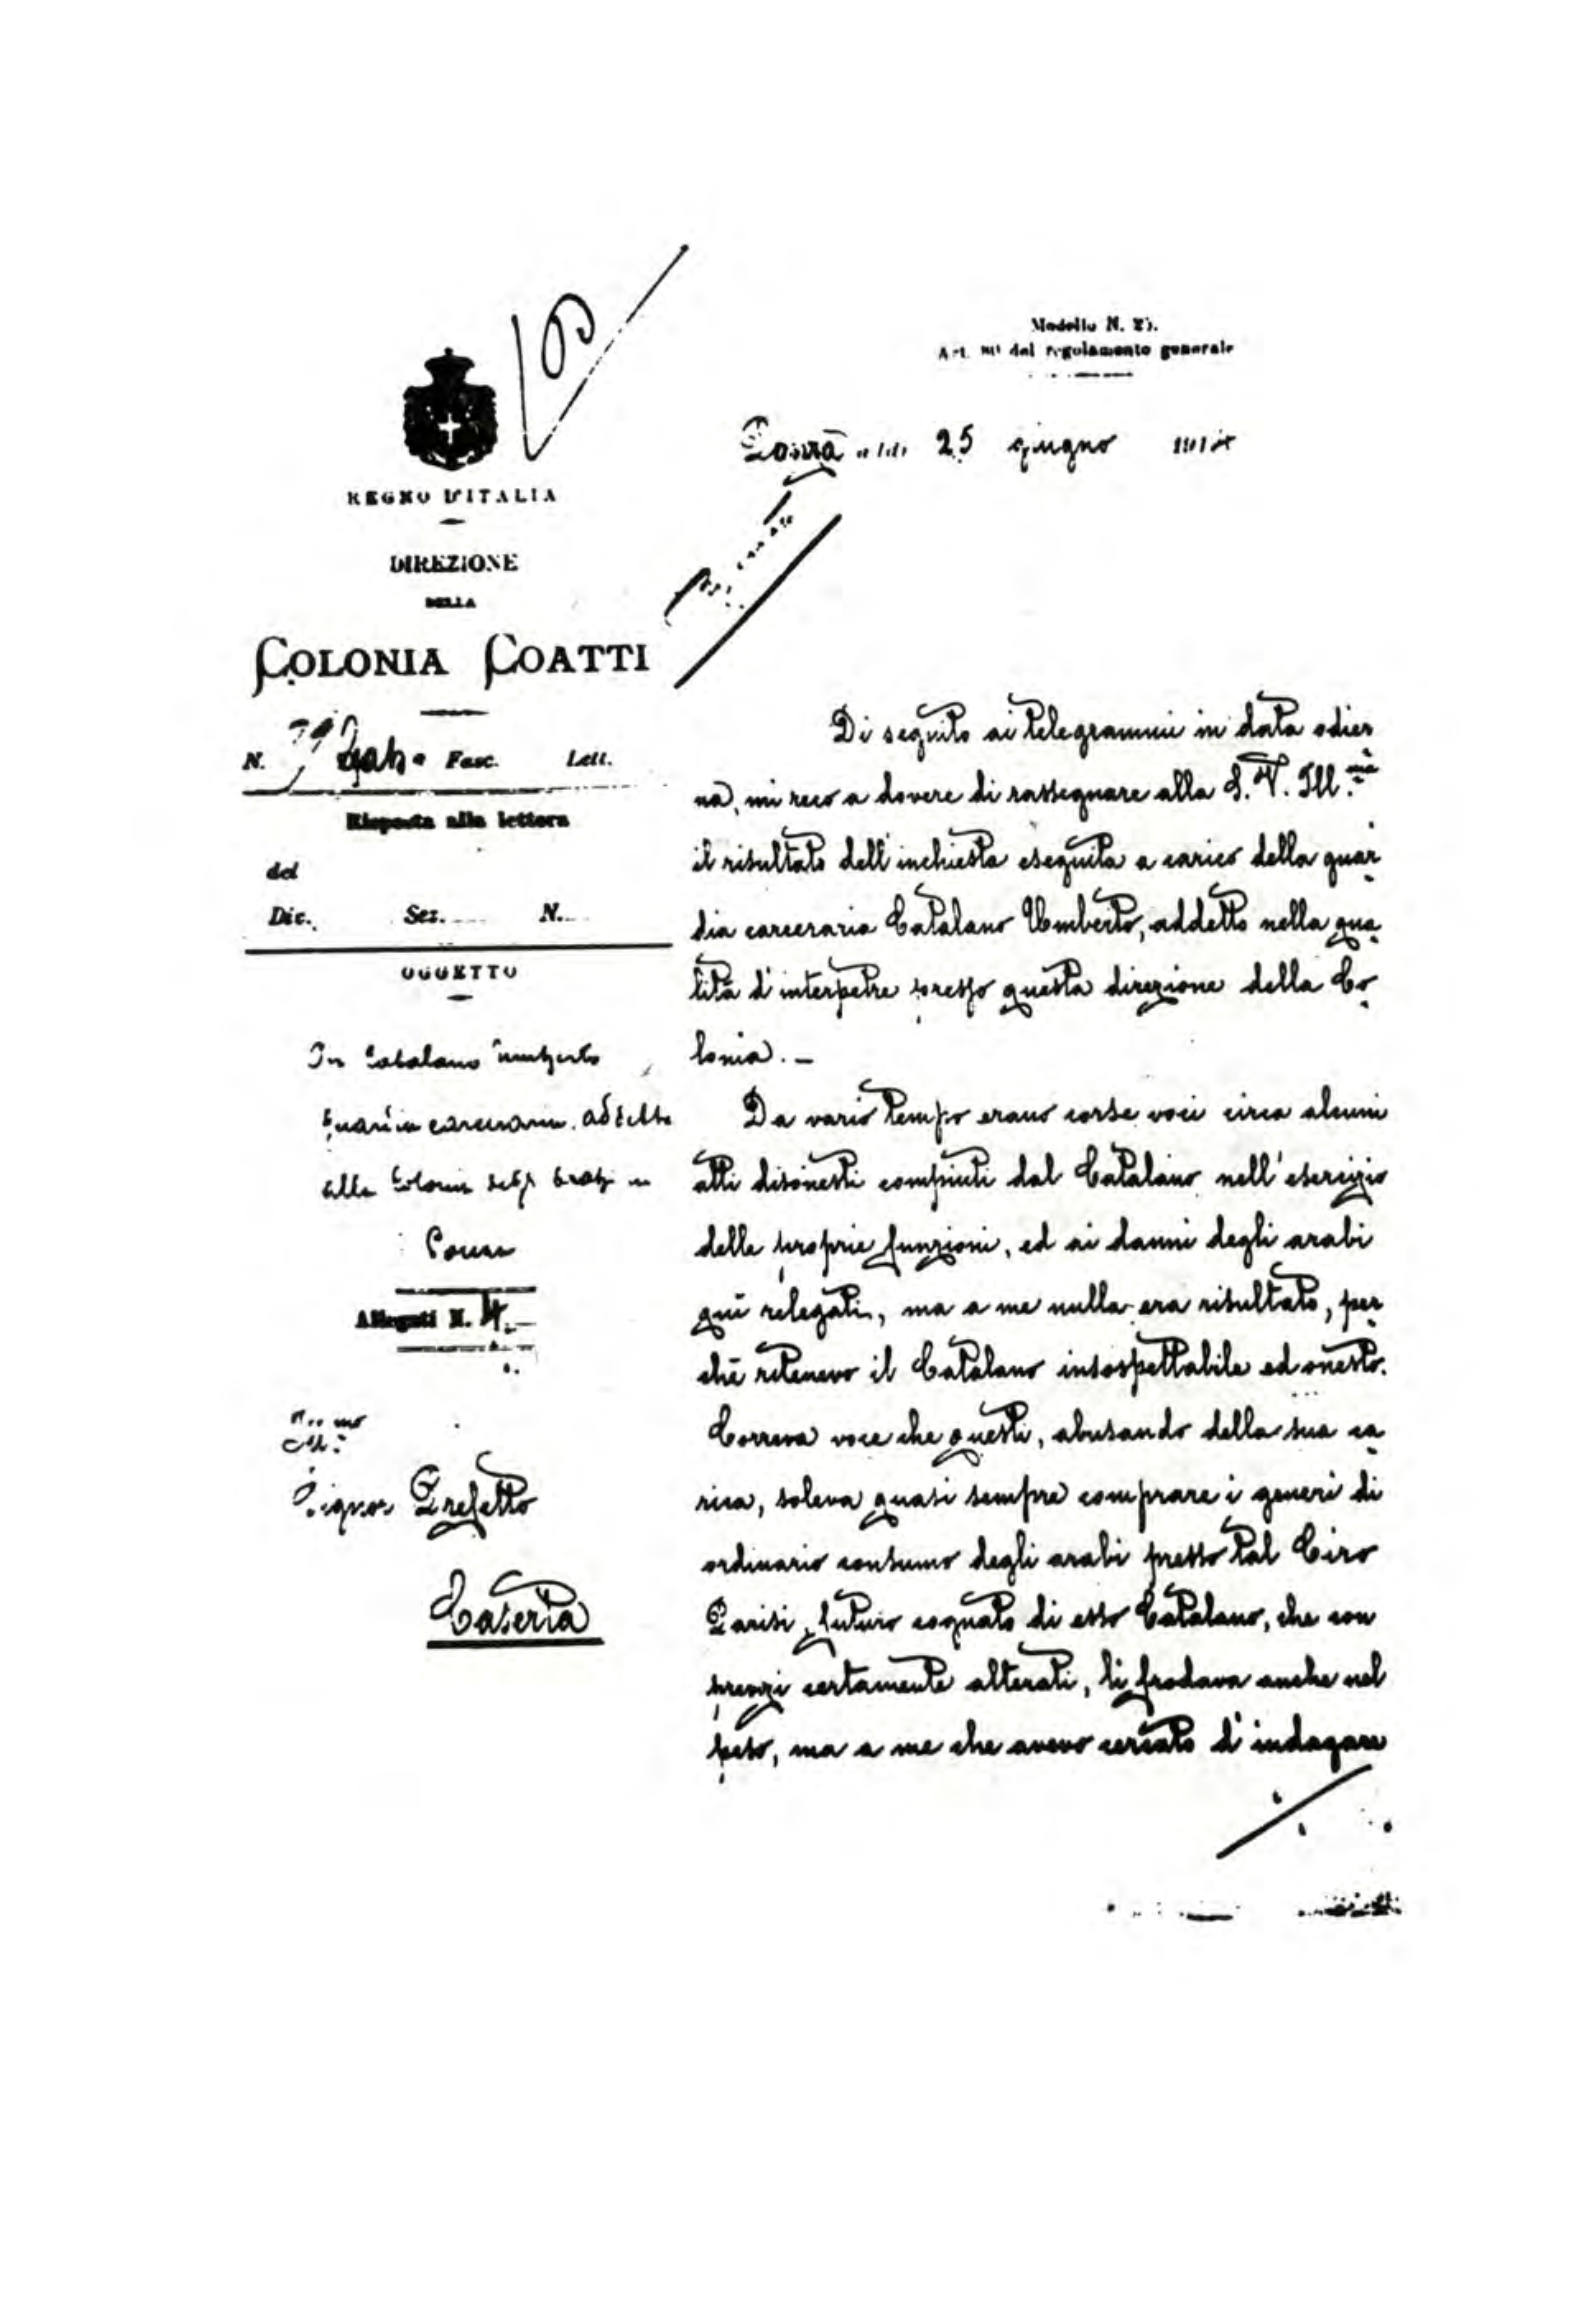 Modello N. 25.
Art. del regolamento generale
Ponza a dì 25 giugno 191
REGNO D'ITALIA
DIREZIONE
DELLA
COLONIA COATTI
N. Gab. Fasc. Lett.
Risposta alla lettera
del
Div. Sez. N.
OGGETTO
Catalano Umberto
guardia carceraria addetto
alla Colonia degli arabi in
Ponza
Allegati N. 4.
Ill.mo
Signor Prefetto
Caserta
Di seguito ai telegrammi in data odier
na, mi reco a dovere di rassegnare alla S. V. Ill.ma
il risultato dell'inchiesta eseguita a carico della guar
dia carceraria Catalano Umberto, addetto nella qua
lità d'interpetre presso questa direzione della Co
lonia. —
Da vario tempo erano corse voci circa alcuni
atti disonesti compiuti dal Catalano nell'esercizio
delle proprie funzioni, ed ai danni degli arabi
qui relegati, ma a me nulla era risultato, per
chè ritenevo il Catalano insospettabile ed onesto.
Correva voce che questi, abusando della sua ca
rica, soleva quasi sempre comprare i generi di
ordinario consumo degli arabi presso tal Ciro
Parisi, futuro cognato di esso Catalano, che con
prezzi certamente alterati, li frodava anche nel
peso, ma a me che avevo cercato d'indagare